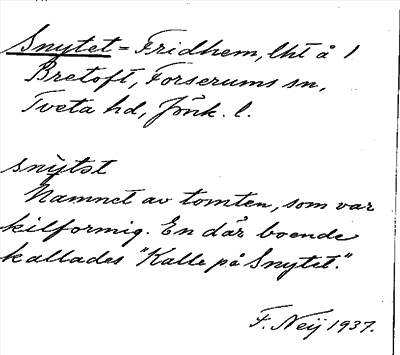 Snytet = Fridhem, lht å 1
Bretoft, Forserums sn,
Tveta hd, Jönk. l.
snỳtst
Namnet av tomten, som var
kilformig. En där boende
kallades "Kalle på Snytet".
F. Neij 1937.